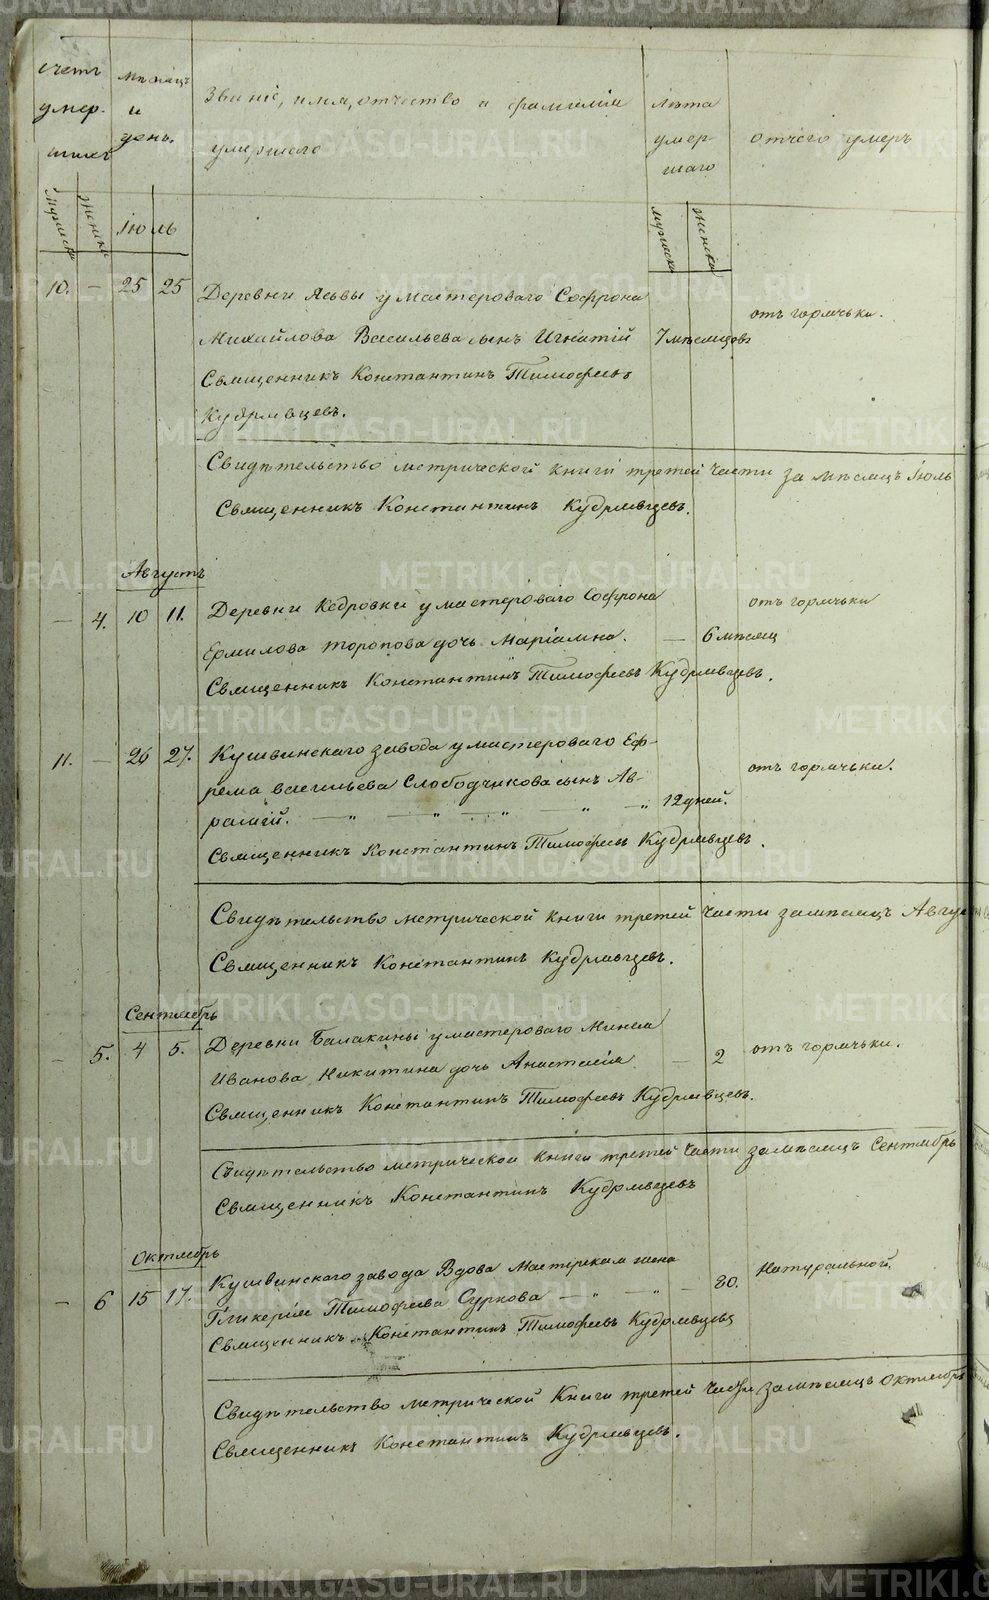 счетъ умер-шихъ
мѣсяцъ и день.
Званіе, имя, отчество и фамилія
умершаго
лѣта умер-шаго
отчего умеръ
мужска
женска
Іюль
мужска
женска
10. — 25 25 Деревни Ясьвы у мастероваго Софрона
отъ горячьки.
Михайлова Васильева сынъ Игнатій 7 мѣсяцовъ
Священникъ Константинъ Тимофеевъ
Кудрявцевъ.
Свидѣтельство метрической книги третей части за мѣсяцъ Іюль
Священникъ Константинъ Кудрявцевъ.
Августъ
— 4. 10 11. Деревни Кедровки у мастероваго Софрона
отъ горячьки
Ермилова Торопова дочь Маріамна. — 6 мѣсяц
Священникъ Константинъ Тимофеевъ Кудрявцевъ.
11. — 26 27. Кушвинскаго завода у мастероваго Еф-
отъ горячьки.
рема Васильева Слободчикова сынъ Ав-
рамій. — „ — „ — „ „ — „ 12 дней.
Священникъ Константинъ Тимофеевъ Кудрявцевъ.
Свидѣтельство метрической книги третей части за мѣсяцъ Авгу
Священникъ Константинъ Кудрявцевъ.
Сентябрь
— 5. 4 5. Деревни Балакины у мастероваго Минса
отъ горячьки.
Иванова Никитина дочь Анастасія — 2
Священникъ Константинъ Тимофеевъ Кудрявцевъ.
Свидѣтельство метрической книги третей части за мѣсяцъ Сентябрь
Священникъ Константинъ Кудрявцевъ
Октябрь
— 6 15 17. Кушвинскаго завода Вдова Мастерская жена
Натуральной.
Гликерія Тимофеева Суркова — „ — „ — 80.
Священникъ Константинъ Тимофеевъ Кудрявцевъ
Свидѣтельство метрической Книги третей части за мѣсяцъ октябрь
Священникъ Константинъ Кудрявцевъ.
METRIKI.GASO-URAL.RU